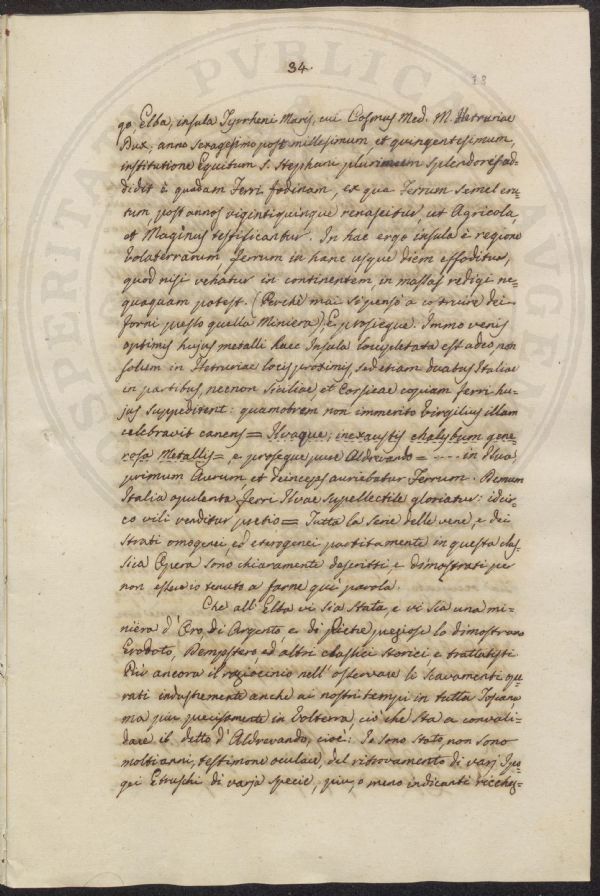 34.
18
go, Elba, insula Tyrrheni Maris, cui Cosmus Med. M. Hetruriae
Dux, anno sexagesimo post millesimum, et quingentesimum,
institutione Equitum S. Stephani plurimum splendoris ad-
didit è quadam Ferri fodinam, ex qua Ferrum semel eru-
tum, post annos vigintiquinque renascitur, ut Agricola,
et Maginus testificantur. In hac ergo insula è regione
Volaterranum, ferrum in hanc usque diem effoditur,
quod nisi vehatur in continentem, in massas redigi ne-
quaquam potest. (Perchè mai si pensò a costruire dei
forni presso quella Miniera) E prosiegue. Immo venis
optimis hujus metalli haec Insula locupletata est adeo, non
solum in Hetruriae locis proximis, sed etiam duabus Italiae
in partibus, necnon Siciliae, et Corsicae copiam ferri hu-
jus suppeditent: quamobrem non immerito Virgilius illam
celebravit canens = Ilvaque, inexaustis chalybum gene-
rosa Metallis =, e prosegue pure Aldrovando = ..... in Ilva
primum Aurum, et deinceps auriebatur Ferrum. Demum
Italia opulenta ferri Ilvae supellectile gloriatur: idcir-
co vili venditur pretio = Tutta la serie delle vene, e dei
strati omogenei, ed eterogenei partitamente in questa clas-
sica Opera sono chiaramente descritti, e dimostrati per
non essere io tenuto a farne quì parola.
Che all'Elba vi sia stata, e vi sia una mi-
niera d'Oro, di Argento, e di pietre preziose lo dimostrano
Erodoto, Dempstero, ed altri classici storici, e trattatisti.
Più ancora il raziocinio nell'osservare le Scavamenti ope-
rati industremente anche ai nostri tempi in tutta Toscana,
ma più precisamente in Volterra, ciò che sta a convali-
dare il detto d'Aldrovando, cioè: Io sono stato, non sono
molti anni, testimone oculare del ritrovamento di varj Ipo-
gei Etruschi di varja specie, più, o meno indicanti ricchez-